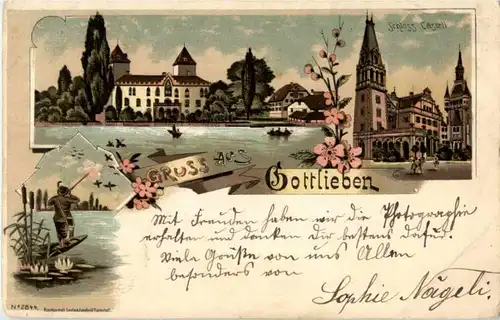 Schloss Castell
Gruss aus
Gottlieben
Mit Freuden haben wir die Photographie
erhalten und danken Dir bestens dafür.
Viele Grüße von uns Allen
besonders von
Sophie Nägeli.
No 2844